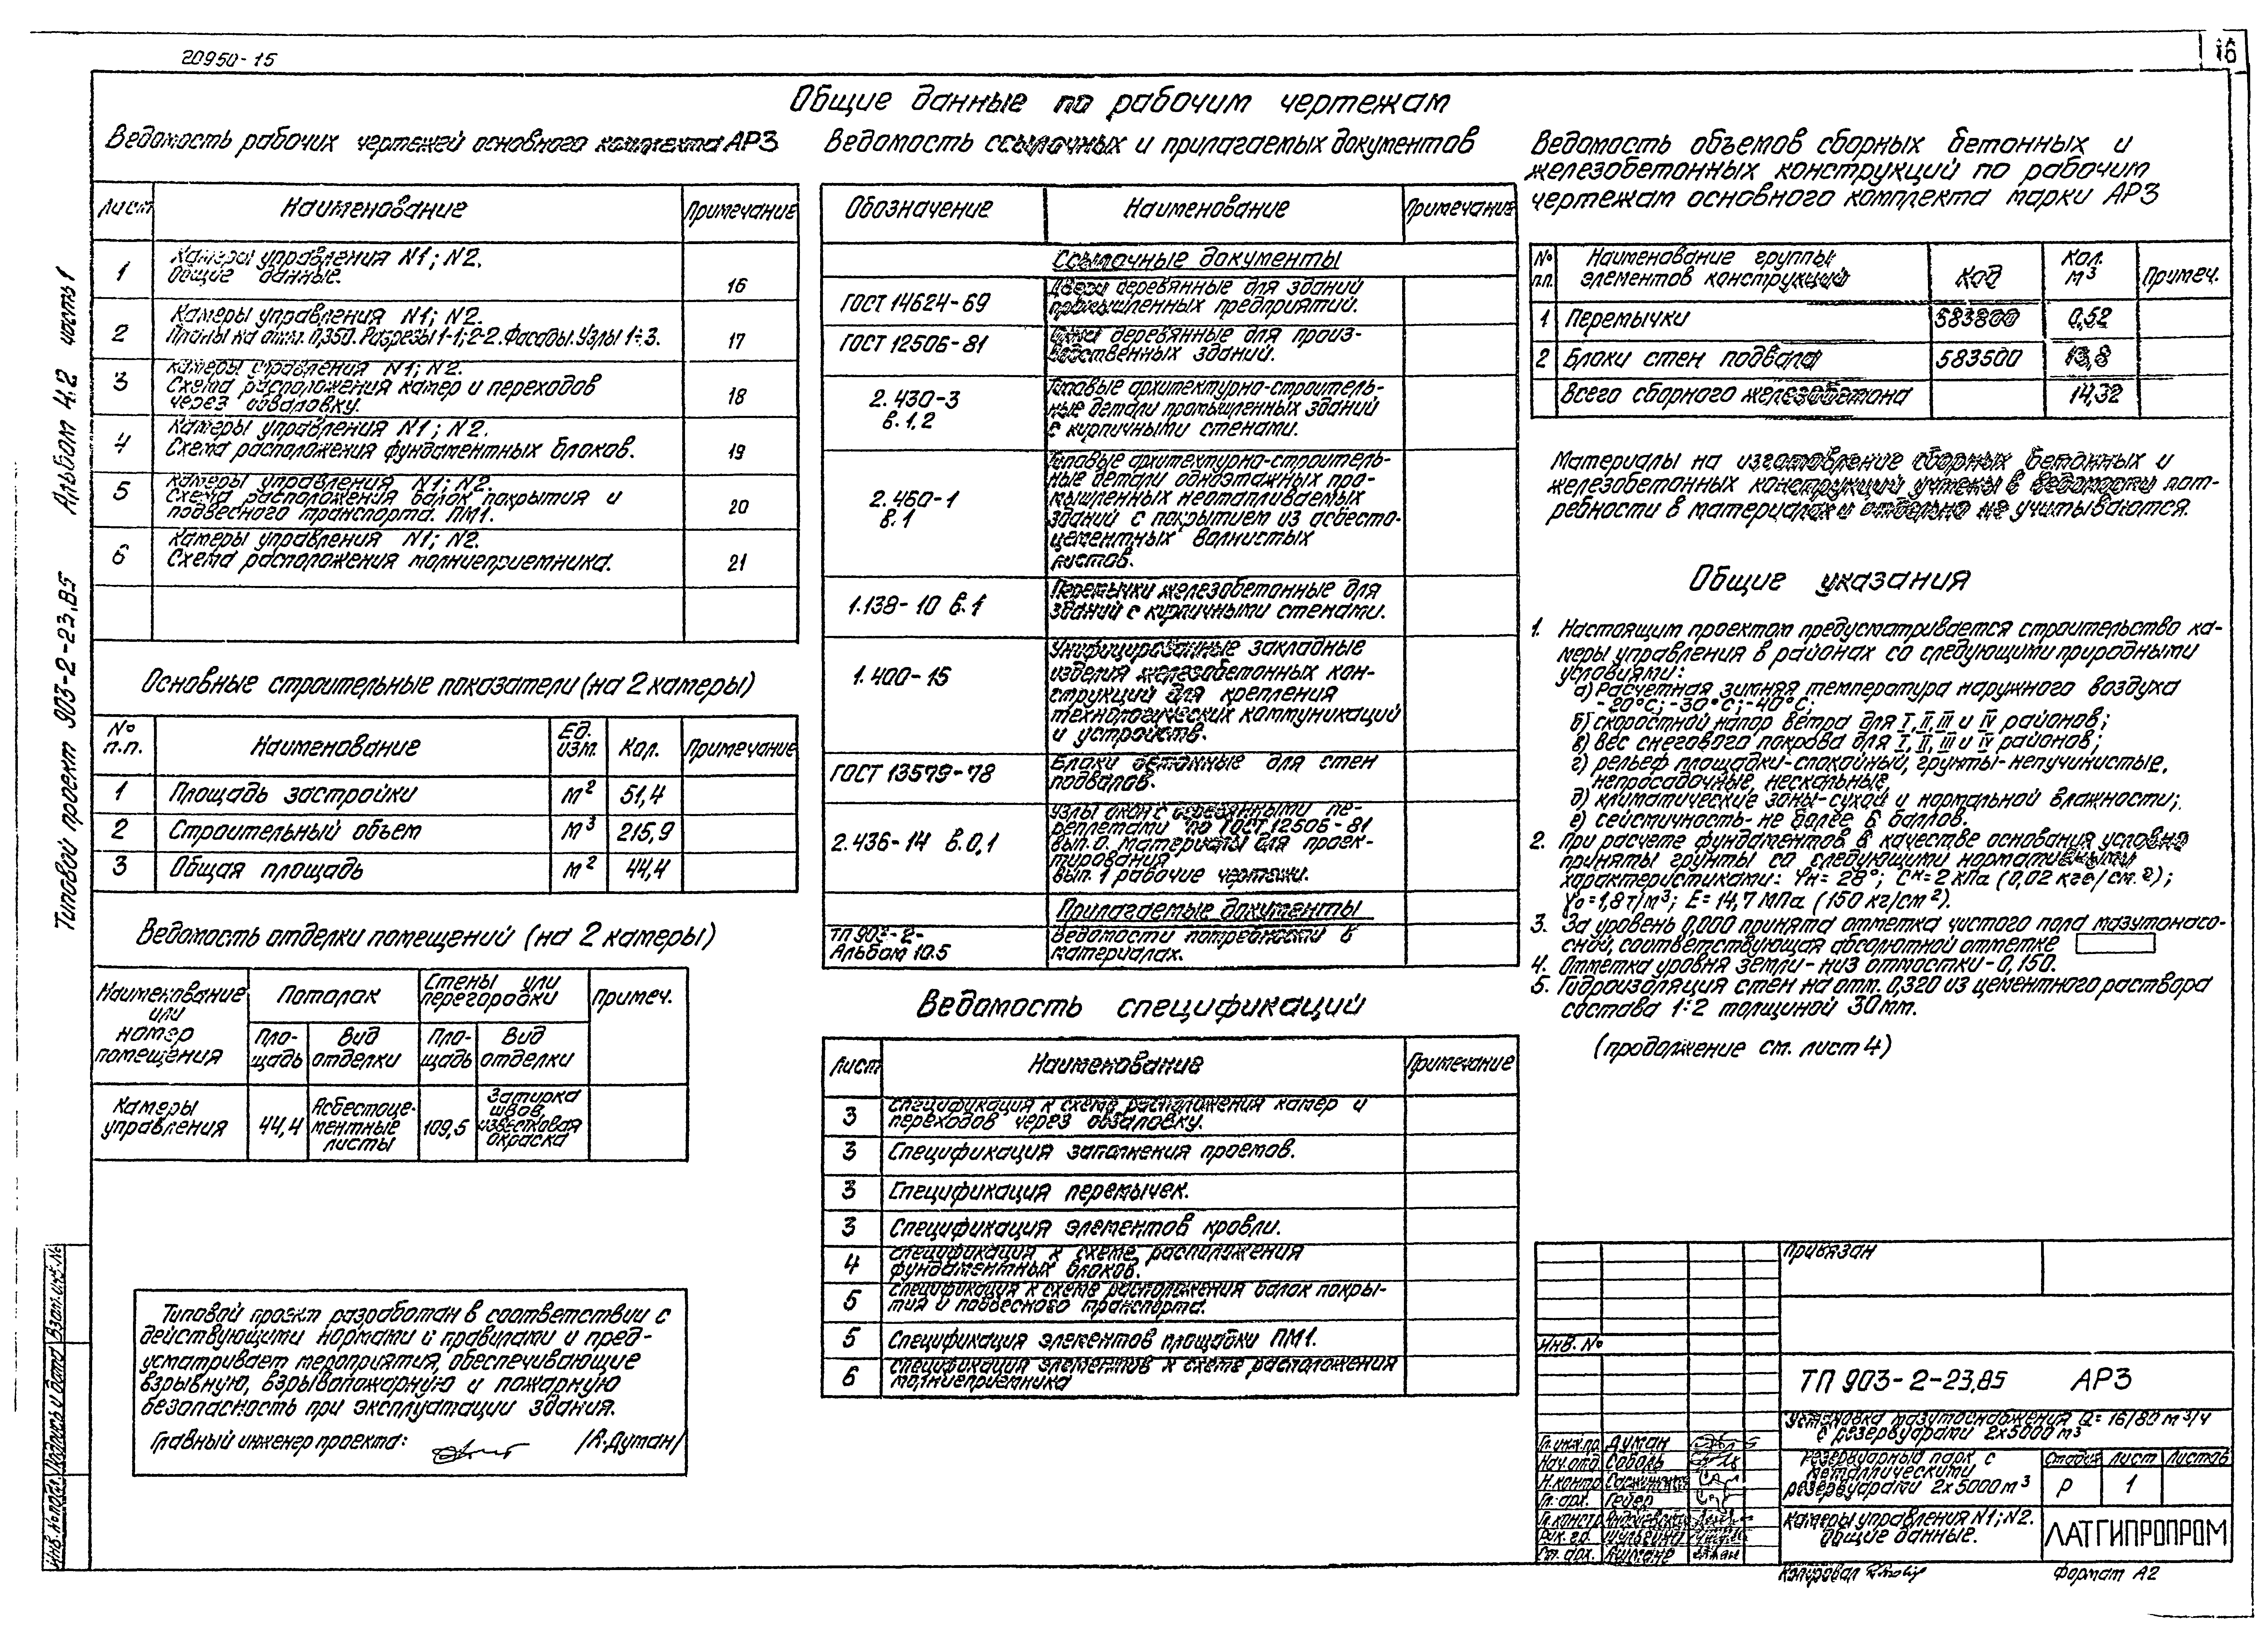 20950-15
16
Общие данные по рабочим чертежам
Ведомость рабочих чертежей основного комплекта АР3
Лист Наименование Примечание
1 Камеры управления N1; N2.
Общие данные. 16
2 Камеры управления N1; N2.
Планы на отм. 0,350. Разрезы 1-1; 2-2. Фасады. Узлы 1÷3. 17
3 Камеры управления N1; N2.
Схема расположения камер и переходов
через обваловку. 18
4 Камеры управления N1; N2.
Схема расположения фундаментных блоков. 19
5 Камеры управления N1; N2.
Схема расположения балок покрытия и
подвесного транспорта. ПМ1. 20
6 Камеры управления N1; N2.
Схема расположения молниеприемника. 21
Основные строительные показатели (на 2 камеры)
№ п.п. Наименование Ед. изм. Кол. Примечание
1 Площадь застройки м² 51,4
2 Строительный объем м³ 215,9
3 Общая площадь м² 44,4
Ведомость отделки помещений (на 2 камеры)
Наименование или номер помещения Потолок Стены или перегородки Примеч.
Площадь Вид отделки Площадь Вид отделки
Камеры управления 44,4 Асбестоцементные листы 109,5 Затирка швов, известковая окраска
Типовой проект разработан в соответствии с
действующими нормами и правилами и пред-
усматривает мероприятия, обеспечивающие
взрывную, взрывопожарную и пожарную
безопасность при эксплуатации здания.
Главный инженер проекта: /А.Думан/
Ведомость ссылочных и прилагаемых документов
Обозначение Наименование Примечание
Ссылочные документы
ГОСТ 14624-69 Двери деревянные для зданий
промышленных предприятий.
ГОСТ 12506-81 Окна деревянные для произ-
водственных зданий.
2.430-3 в.1,2 Типовые архитектурно-строитель-
ные детали промышленных зданий
с кирпичными стенами.
2.460-1 в.1 Типовые архитектурно-строитель-
ные детали одноэтажных про-
мышленных неотапливаемых
зданий с покрытием из асбесто-
цементных волнистых
листов.
1.138-10 в.1 Перемычки железобетонные для
зданий с кирпичными стенами.
1.400-15 Унифицированные закладные
изделия железобетонных кон-
струкций для крепления
технологических коммуникаций
и устройств.
ГОСТ 13579-78 Блоки бетонные для стен
подвалов.
2.436-14 в.0,1 Узлы окон с деревянными пе-
реплетами по ГОСТ 12506-81
вып. 0. материалы для проек-
тирования
вып. 1 рабочие чертежи.
Прилагаемые документы
ТП 903-2-
Альбом 10.5 Ведомости потребности в
материалах.
Ведомость спецификаций
Лист Наименование Примечание
3 Спецификация к схеме расположения камер и
переходов через обваловку.
3 Спецификация заполнения проемов.
3 Спецификация перемычек.
3 Спецификация элементов кровли.
4 Спецификация к схеме расположения
фундаментных блоков.
5 Спецификация к схеме расположения балок покры-
тия и подвесного транспорта.
5 Спецификация элементов площадки ПМ1.
6 Спецификация элементов к схеме расположения
молниеприемника
Ведомость объемов сборных бетонных и
железобетонных конструкций по рабочим
чертежам основного комплекта марки АР3
№ п.п. Наименование группы элементов конструкций Код Кол. м³ Примеч.
1 Перемычки 583800 0,52
2 Блоки стен подвала 583500 13,8
Всего сборного железобетона 14,32
Материалы на изготовление сборных бетонных и
железобетонных конструкций учтены в ведомости пот-
ребности в материалах и отдельно не учитываются.
Общие указания
1. Настоящим проектом предусматривается строительство ка-
меры управления в районах со следующими природными
условиями:
а) Расчетная зимняя температура наружного воздуха
-20°С; -30°С; -40°С;
б) скоростной напор ветра для I, II, III и IV районов;
в) вес снегового покрова для I, II, III и IV районов;
г) рельеф площадки-спокойный, грунты-непучинистые,
непросадочные, нескальные.
д) климатические зоны-сухой и нормальной влажности;
е) сейсмичность-не более 6 баллов.
2. При расчете фундаментов в качестве основания условно
приняты грунты со следующими нормативными
характеристиками: φн = 28°; Сн = 2 кПа (0,02 кгс/см.²);
γо = 1,8 т/м³; Е = 14,7 МПа (150 кг/см²).
3. За уровень 0,000 принята отметка чистого пола мазутонасо-
сной, соответствующая абсолютной отметке
4. Отметка уровня земли-низ отмостки-0,150.
5. Гидроизоляция стен на отм. 0,320 из цементного раствора
состава 1:2 толщиной 30мм.
(продолжение см. лист 4)
Привязан
Инв. №
ТП 903-2-23.85 АР3
Установка мазутоснабжения Q= 16/80 м³/ч
с резервуарами 2х5000 м³
Гл. инж. пр. Думан
Нач. отд. Соболь
Н. контр.
Гл. арх. Гебер
Гл. констр.
Рук. гр.
Ст. арх.
Резервуарный парк с
металлическими
резервуарами 2х5000м³
Стадия Лист Листов
Р 1
Камеры управления N1; N2.
Общие данные.
ЛАТГИПРОПРОМ
Копировал
Формат А2
Типовой проект 903-2-23.85 Альбом 4.2 часть 1
Инв. № подл. Подпись и дата Взам. инв. №